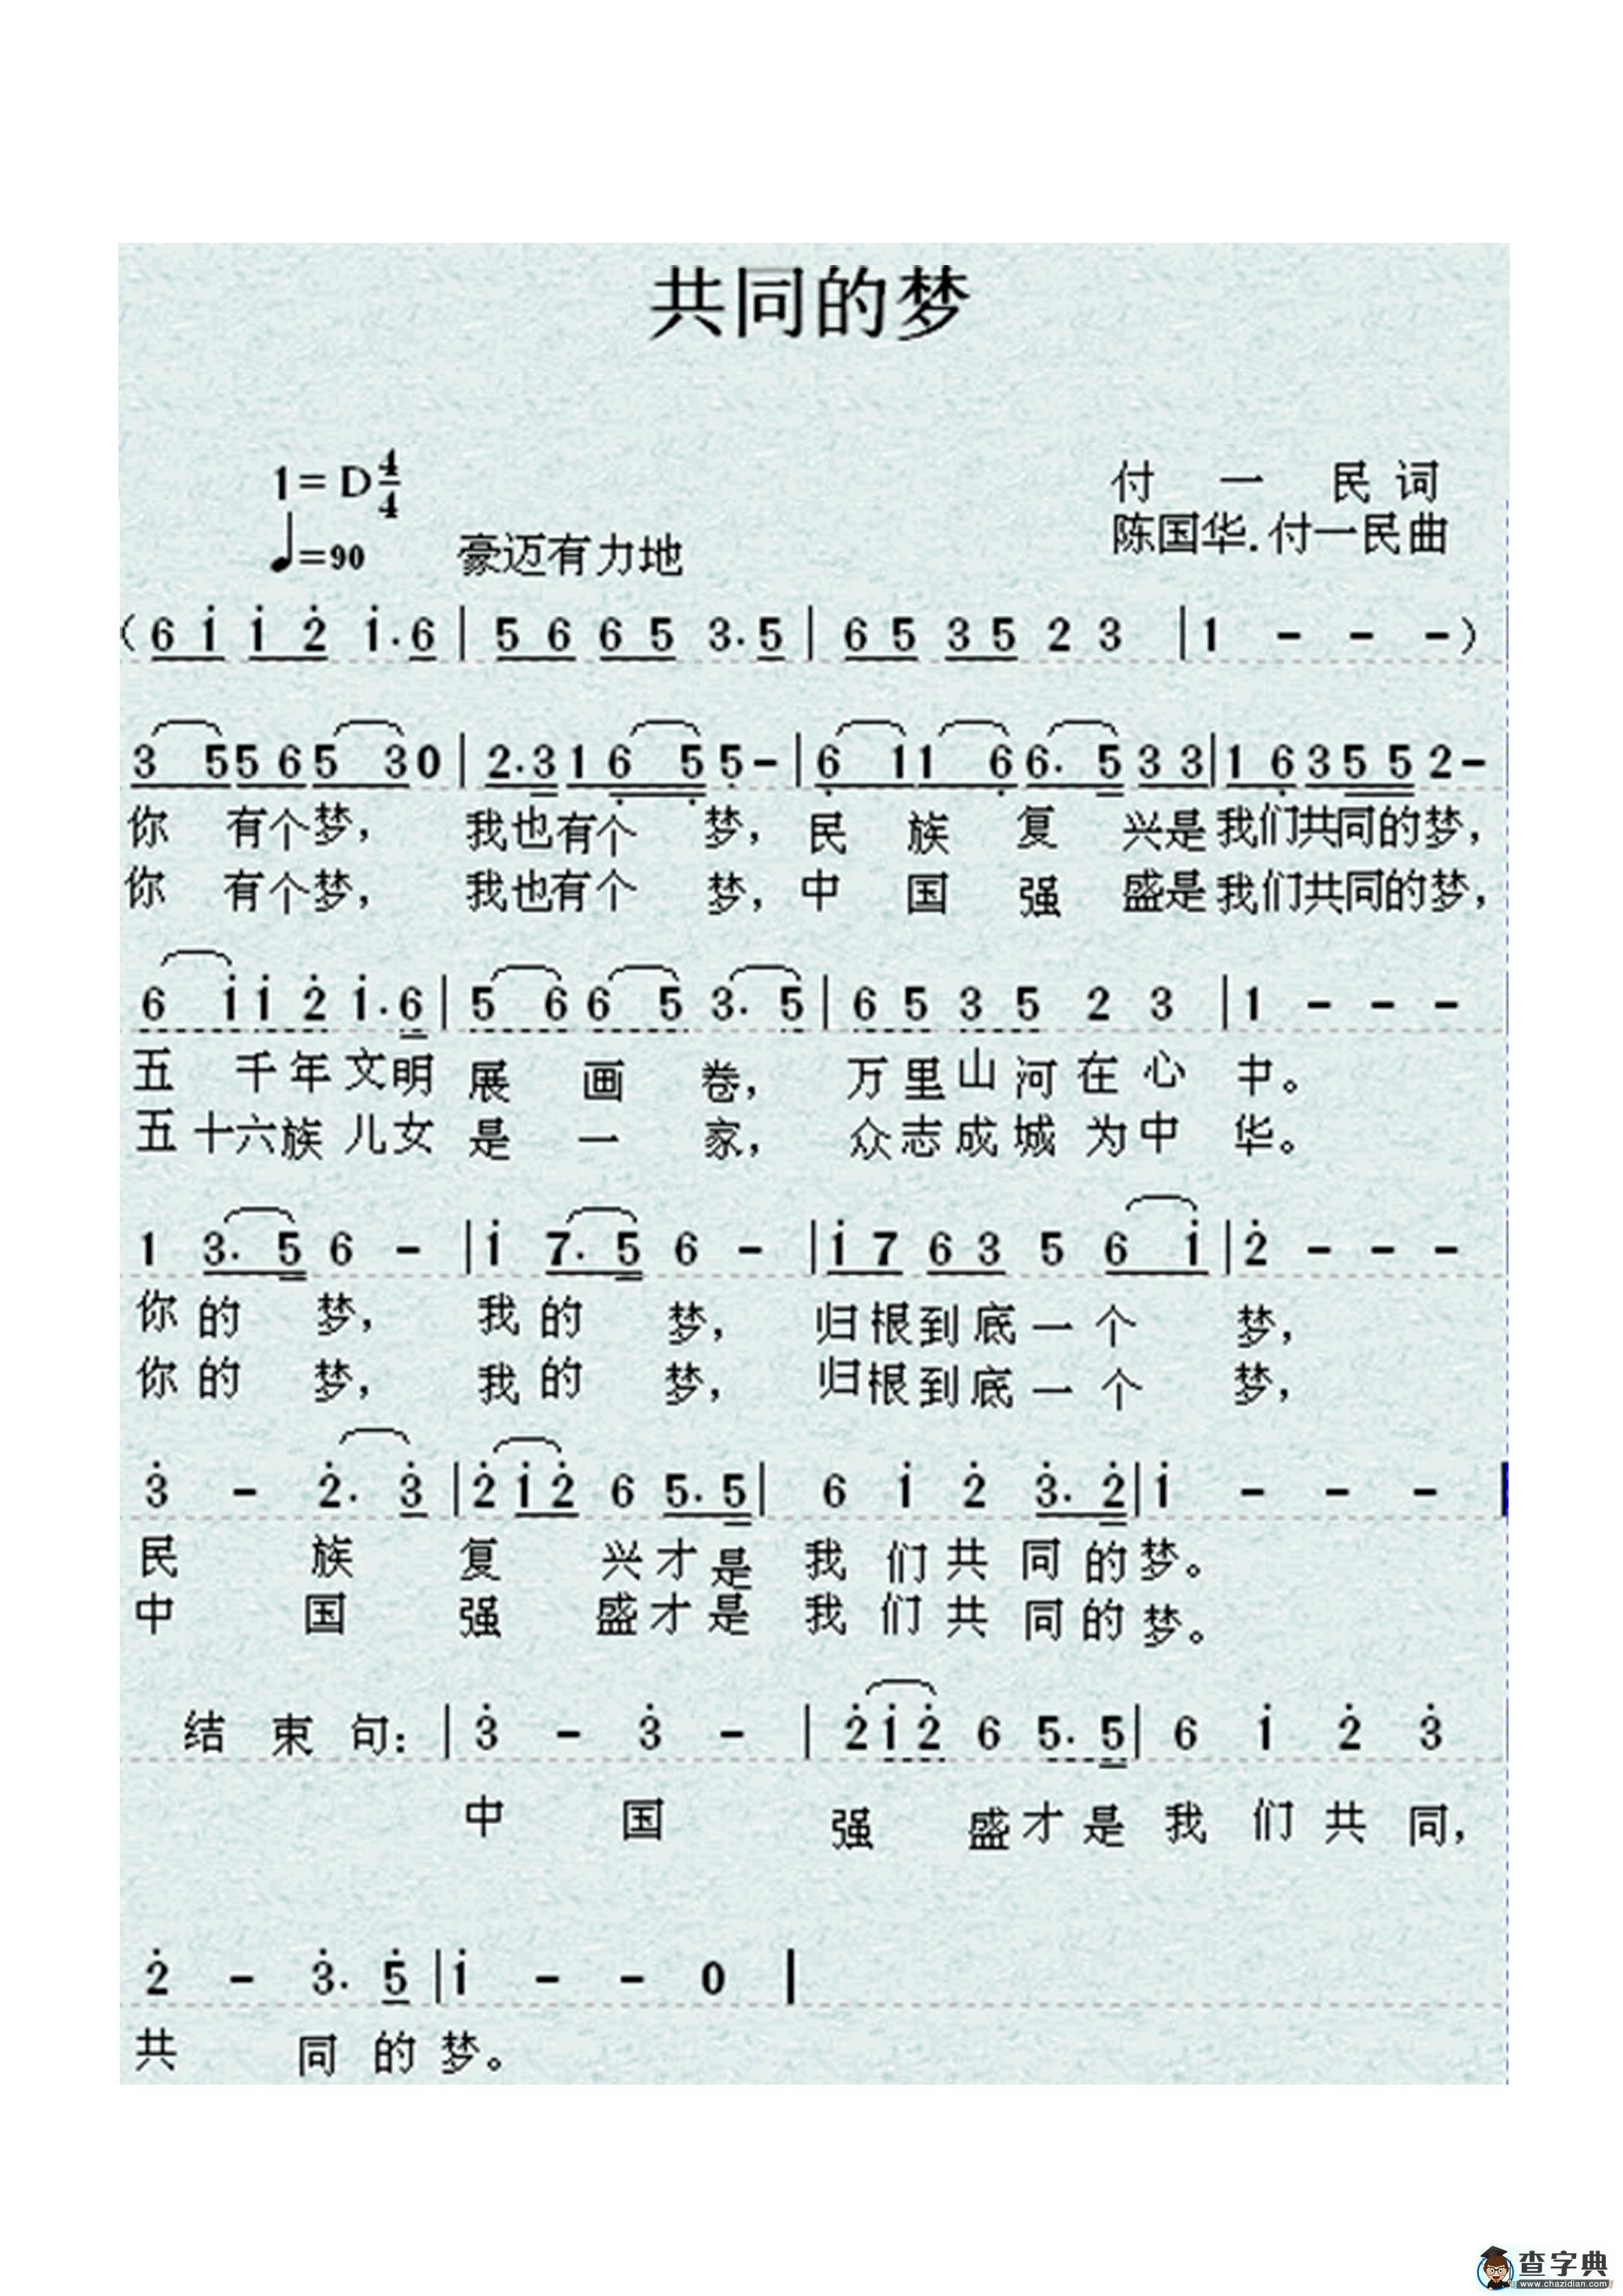 共同的梦
1=D 4/4
付一民词
♩=90 豪迈有力地
陈国华.付一民曲
(6 i̇ i̇ 2̇ i̇.6 | 5 6 6 5 3.5 | 6 5 3 5 2 3 | 1 - - -)
3 5 5 6 5 3 0 | 2.3 1 6̣ 5̣ 5̣ - | 6̣ 1 1 6̣ 6. 5 3 3 | 1 6̣ 3 5 5 2 -
你有个梦，我也有个梦，民族复兴是我们共同的梦，
你有个梦，我也有个梦，中国强盛是我们共同的梦，
6 i̇ i̇ 2̇ i̇.6 | 5 6 6 5 3. 5 | 6 5 3 5 2 3 | 1 - - -
五千年文明展画卷，万里山河在心中。
五十六族儿女是一家，众志成城为中华。
1 3. 5 6 - | i̇ 7. 5 6 - | i̇ 7 6 3 5 6 i̇ | 2̇ - - -
你的梦，我的梦，归根到底一个梦，
你的梦，我的梦，归根到底一个梦，
3̇ - 2̇. 3̇ | 2̇ i̇ 2̇ 6 5. 5 | 6 i̇ 2̇ 3̇. 2̇ | i̇ - - -
民族复兴才是我们共同的梦。
中国强盛才是我们共同的梦。
结束句：| 3̇ - 3̇ - | 2̇ i̇ 2̇ 6 5. 5 | 6 i̇ 2̇ 3̇
中国强盛才是我们共同，
2̇ - 3̇. 5̇ | i̇ - - 0 |
共同的梦。
查字典
www.chazidian.com